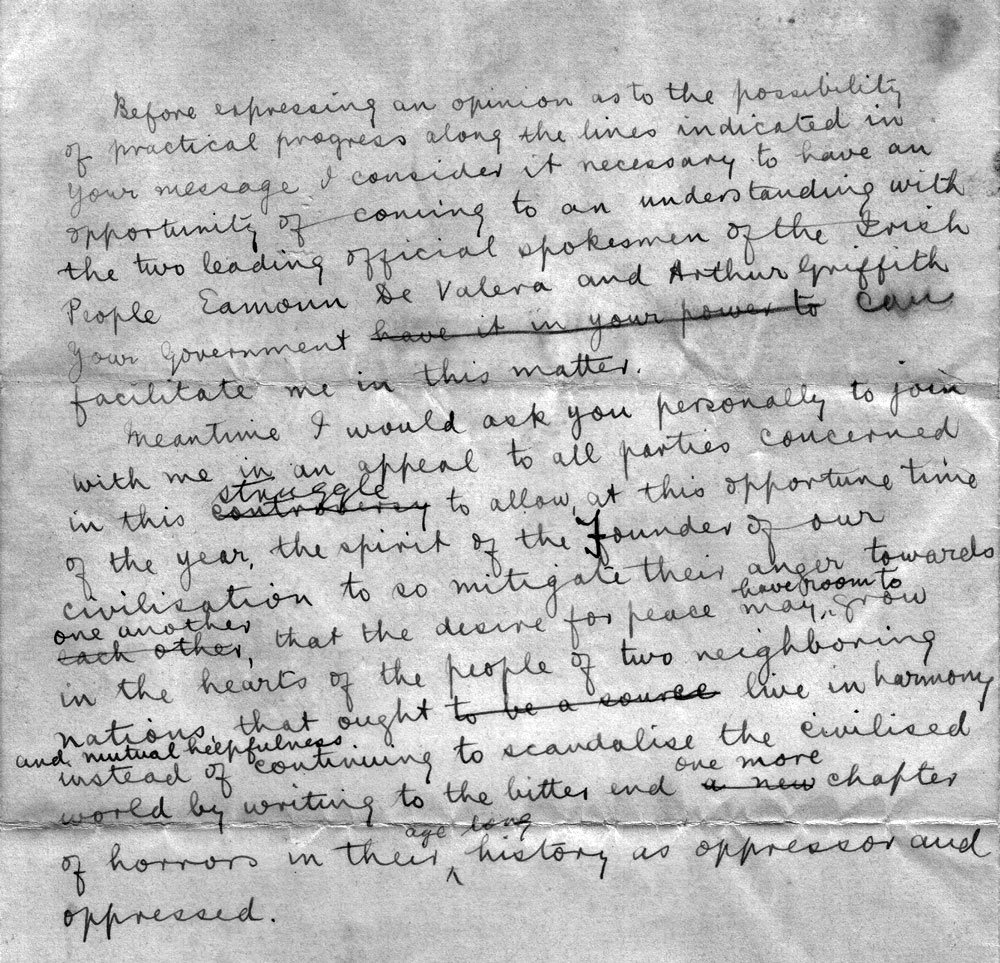 Before expressing an opinion as to the possibility
of practical progress along the lines indicated in
your message I consider it necessary to have an
opportunity of coming to an understanding with
the two leading official spokesmen of the Irish
People Eamonn De Valera and Arthur Griffith
Your Government have it in your power to can
facilitate me in this matter.
Meantime I would ask you personally to join
with me in an appeal to all parties concerned
struggle
in this controversy to allow, at this opportune time
of the year, the spirit of the Founder of our
civilisation to so mitigate their anger towards
one another have room to
each other, that the desire for peace may, grow
in the hearts of the people of two neighboring
nations, that ought to be a source live in harmony
and mutual helpfulness
instead of continuing to scandalise the civilised
one more
world by writing to the bitter end a new chapter
age long
of horrors in their history as oppressor and
oppressed.